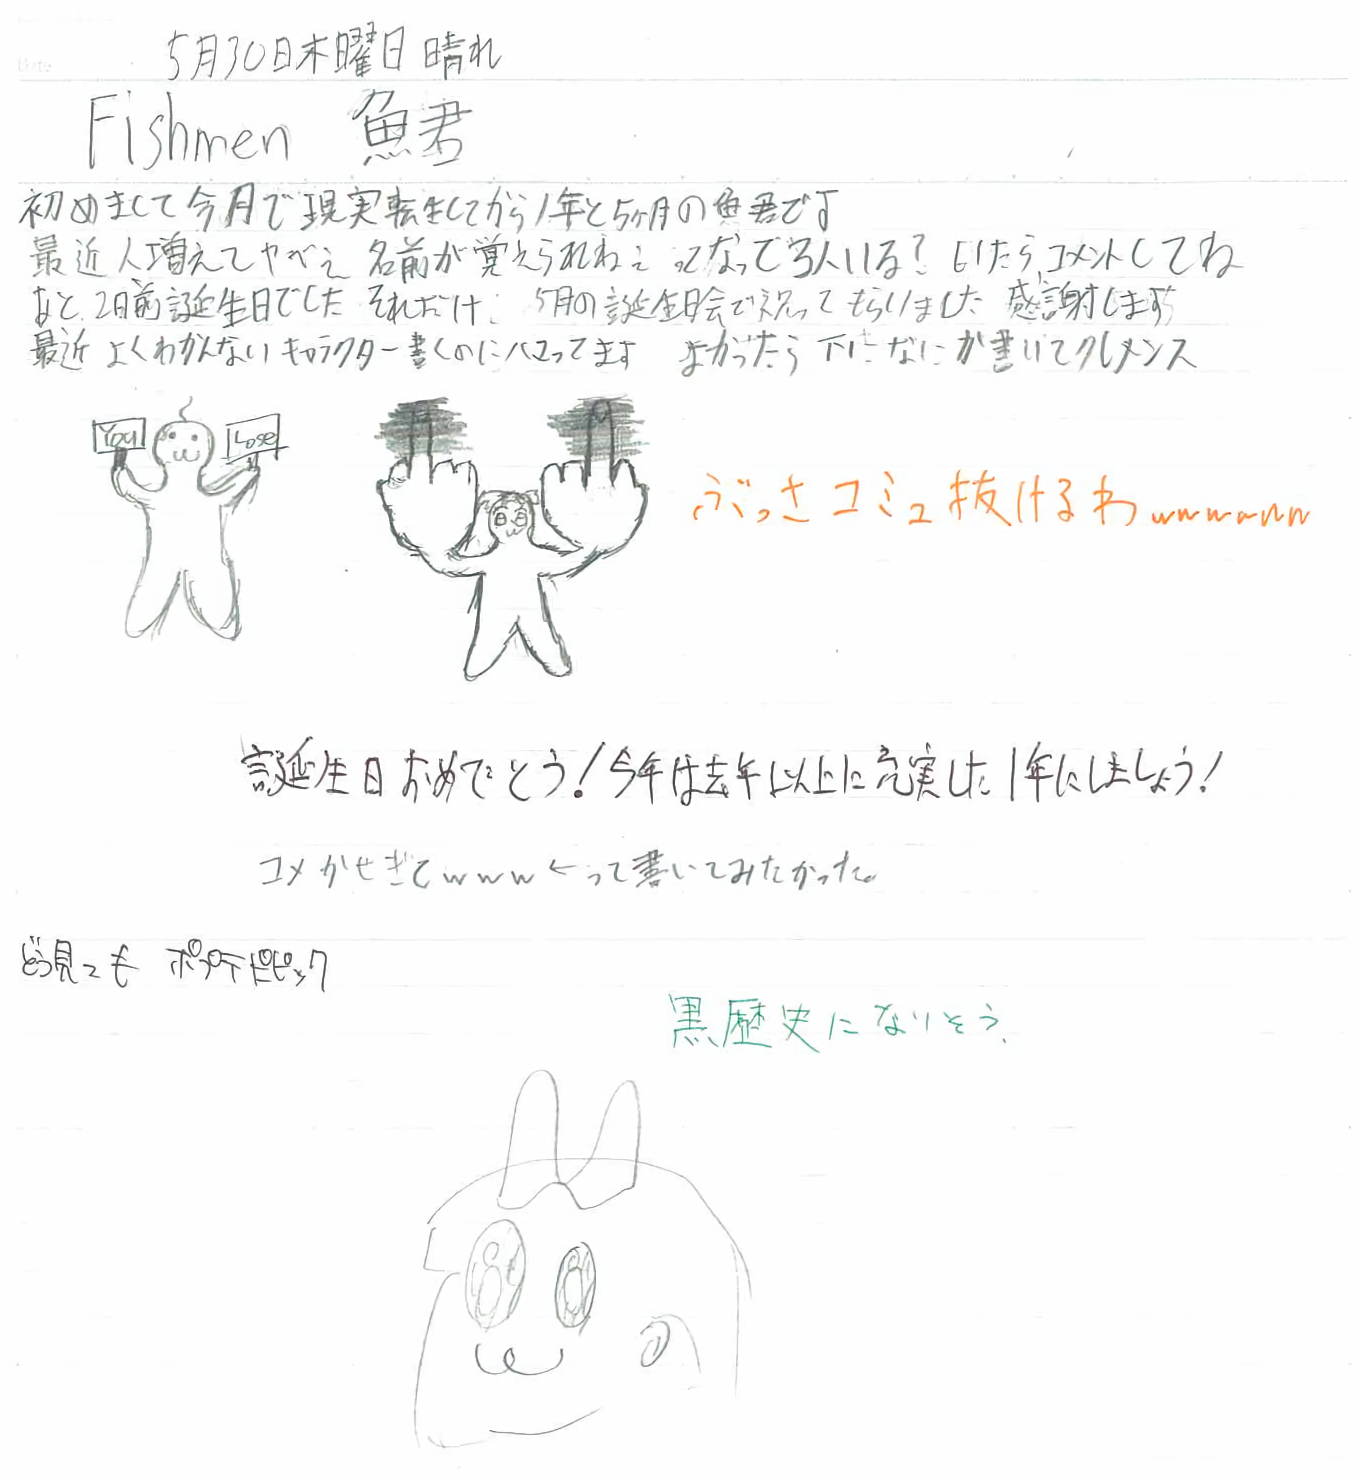 Date
5月30日木曜日 晴れ
Fishmen 魚君
初めまして今月で現実転生してから1年と5ヶ月の魚君です
最近人増えてヤベぇ 名前が覚えられねぇ ってなってる人いる? いたらコメントしてね
あと、2日前誕生日でした それだけ. 5月の誕生日会で祝ってもらいました 感謝します
最近 よくわかんないキャラクター書くのにハマってます よかったら下になにか書いてクレメンス
You Lose
ぶっさ コミュ抜けるわwwwwww
誕生日おめでとう!今年は去年以上に充実した1年にしましょう!
コメかせぎてwww←って書いてみたかった。
どう見ても ポプテピピック
黒歴史になりそう.